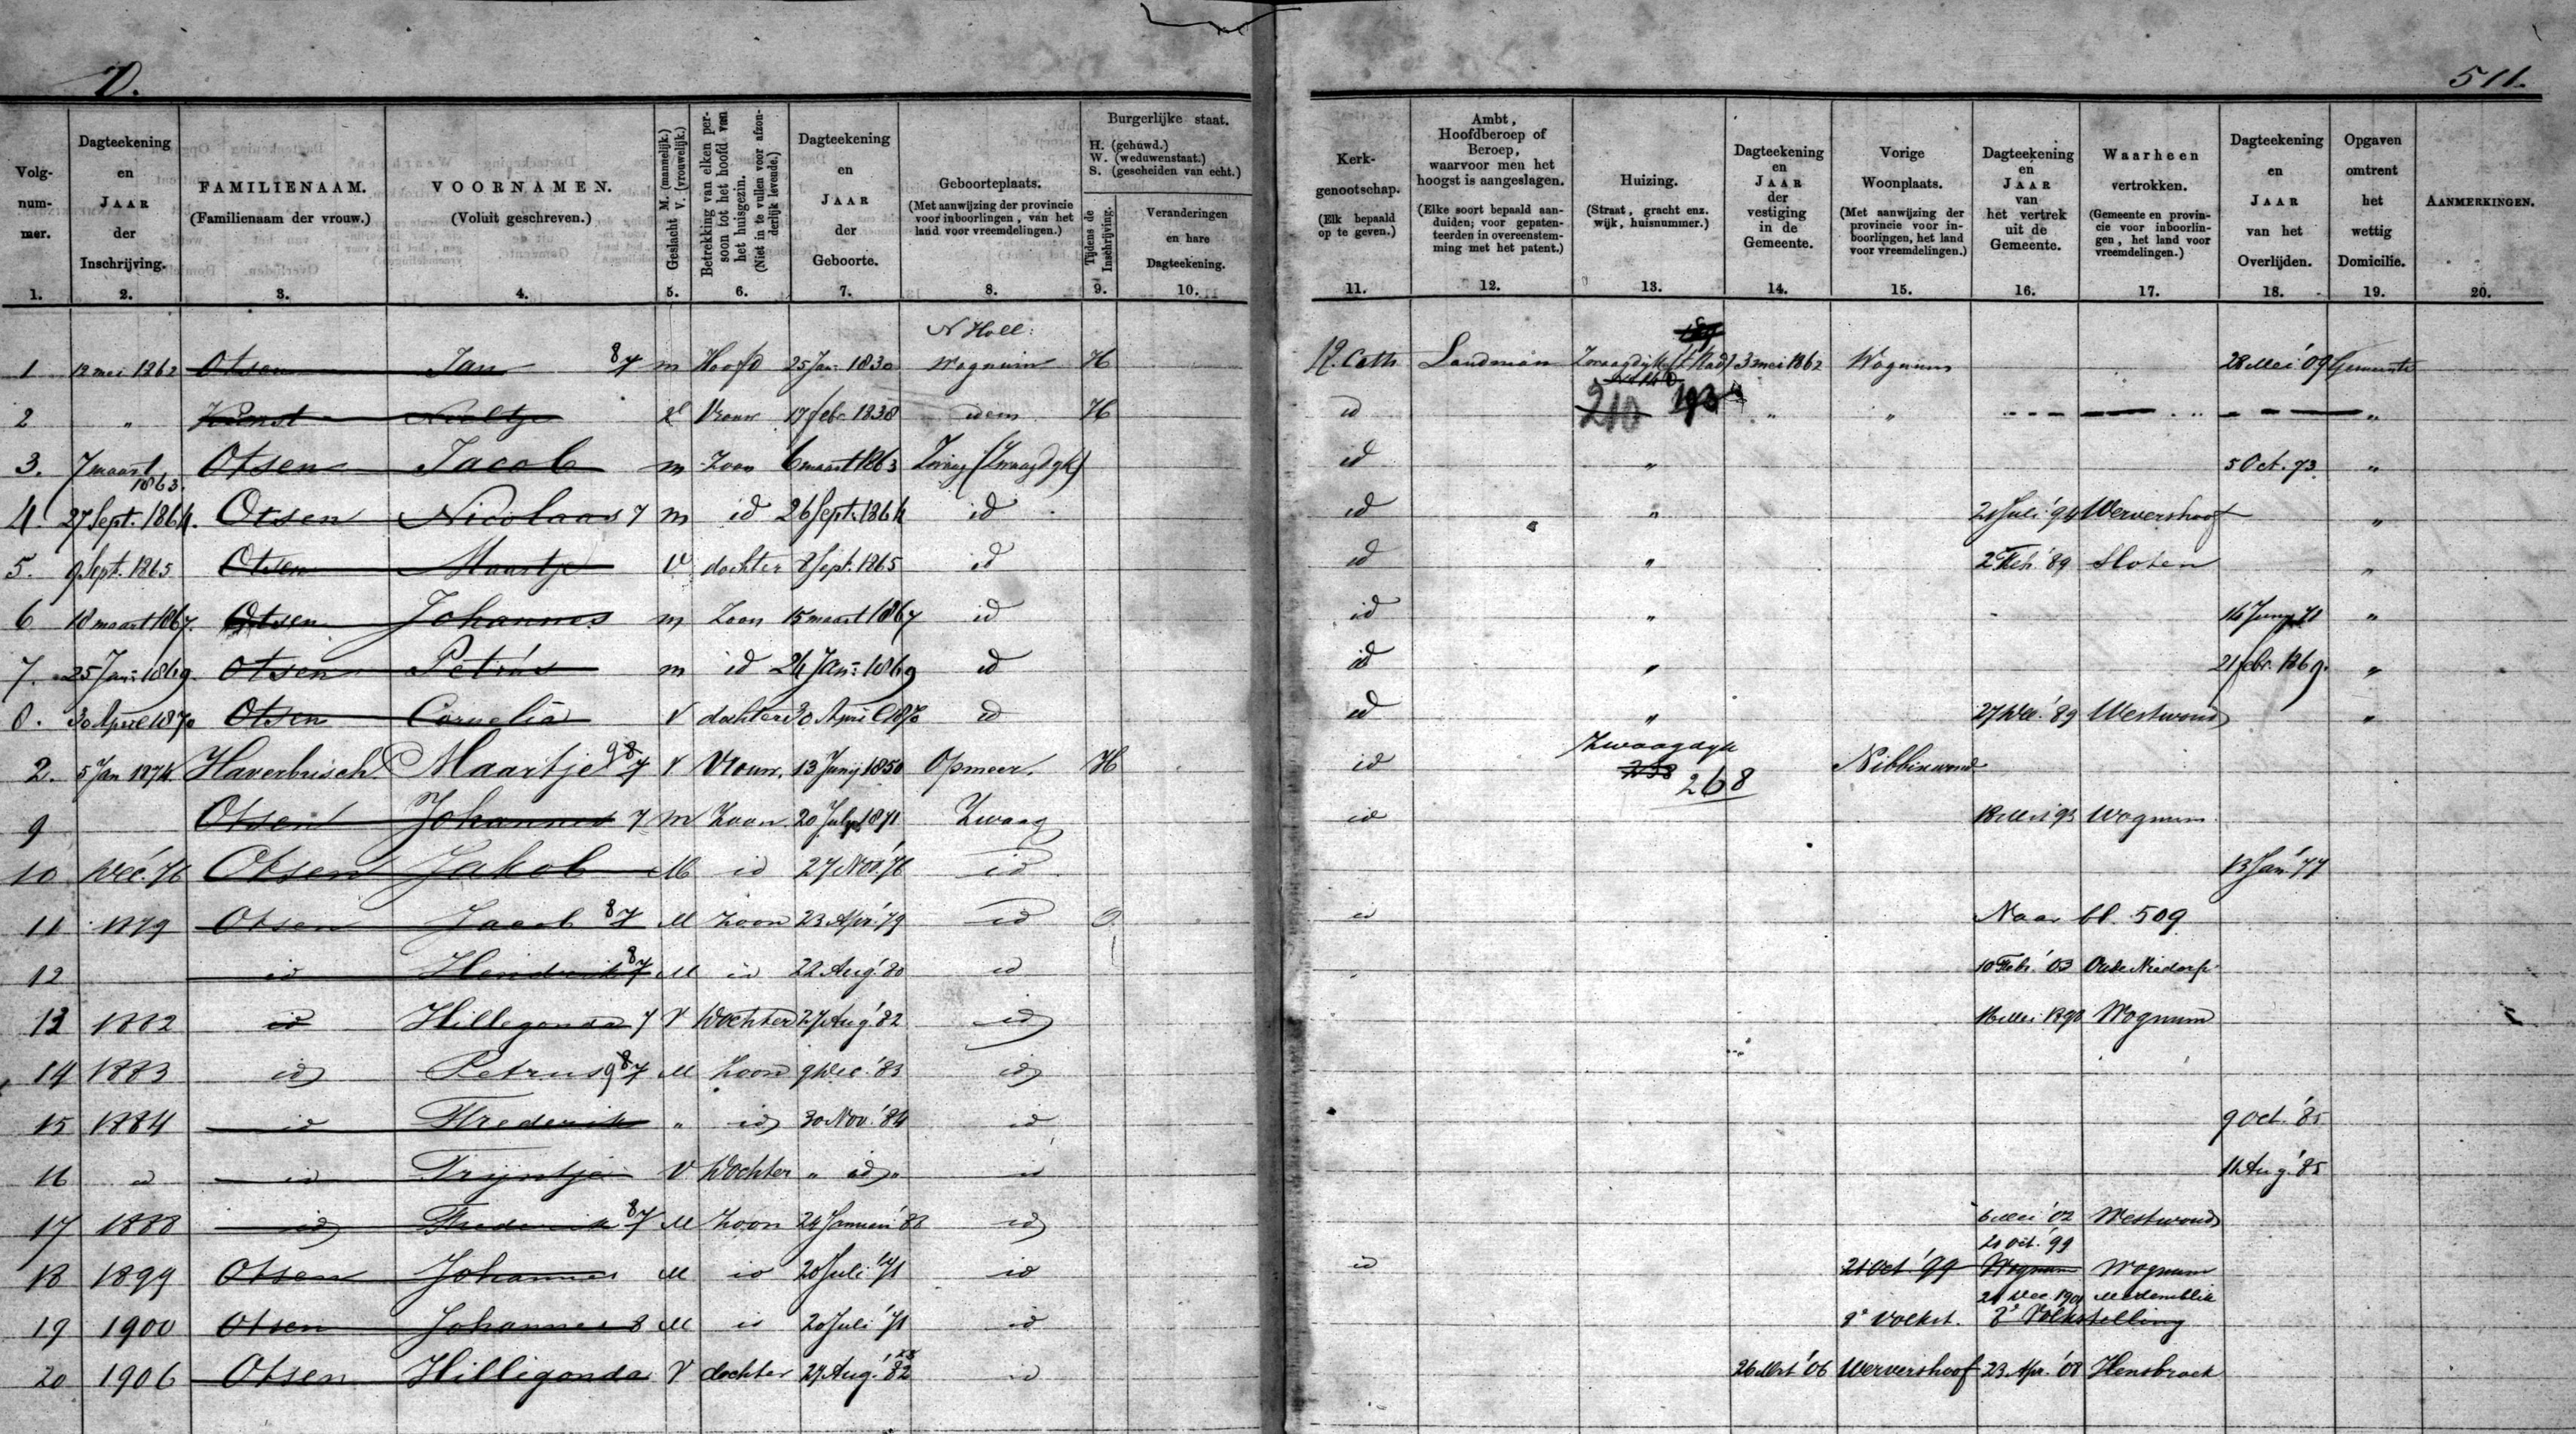 O.
511.
Volg-
num-
mer.
1.
Dagteekening
en
JAAR
der
Inschrijving.
2.
FAMILIENAAM.
(Familienaam der vrouw.)
3.
VOORNAMEN.
(Voluit geschreven.)
4.
Geslacht M. (mannelijk.)
V. (vrouwelijk.)
5.
Betrekking van elken per-
soon tot het hoofd van
het huisgezin.
(Niet in te vullen voor afzon-
derlijk levende.)
6.
Dagteekening
en
JAAR
der
Geboorte.
7.
Geboorteplaats.
(Met aanwijzing der provincie
voor inboorlingen, van het
land voor vreemdelingen.)
8.
Burgerlijke staat.
H. (gehuwd.)
W. (weduwenstaat.)
S. (gescheiden van echt.)
Tijdens de
Inschrijving.
9.
Veranderingen
en hare
Dagteekening.
10.
Kerk-
genootschap.
(Elk bepaald
op te geven.)
11.
Ambt,
Hoofdberoep of
Beroep,
waarvoor men het
hoogst is aangeslagen.
(Elke soort bepaald aan-
duiden; voor gepaten-
teerden in overeenstem-
ming met het patent.)
12.
Huizing.
(Straat, gracht enz.
wijk, huisnummer.)
13.
Dagteekening
en
JAAR
der
vestiging
in de
Gemeente.
14.
Vorige
Woonplaats.
(Met aanwijzing der
provincie voor in-
boorlingen, het land
voor vreemdelingen.)
15.
Dagteekening
en
JAAR
van
het vertrek
uit de
Gemeente.
16.
Waarheen
vertrokken.
(Gemeente en provin-
cie voor inboorlin-
gen, het land voor
vreemdelingen.)
17.
Dagteekening
en
JAAR
van het
Overlijden.
18.
Opgaven
omtrent
het
wettig
Domicilie.
19.
AANMERKINGEN.
20.
N Holl:
1 12 mei 1862 Otsen Jan 8 7 m Hoofd 25 Jan: 1830 Wognum H R. Cath Landman Zwaagdijk 3 mei 1862 Wognum 28 Mei '09 Gemeente
2 " Neeltje Vrouw 17 febr. 1838 idem H id 210 193 " " "
3. 7 maart 1863. Otsen Jacob m Zoon 6 maart 1863 Zwaag (Zwaagdyk) id " 5 Oct. 73 "
4. 27 Sept. 1864. Otsen Nicolaas 7 m id 26 Sept. 1864 id id " 21 Juli '94 Wervershoof "
5. 9 Sept. 1865 Otsen Maartje V dochter 8 Sept. 1865 id id " 2 Feb. '89 Sloten "
6 18 maart 1867. Otsen Johannes m Zoon 15 maart 1867 id id " 71 "
7. 25 Jan: 1869. Otsen Petrus m id 24 Jan: 1869 id id " 21 febr. 1869. "
8. 30 April 1870 Otsen Cornelia V dochter 30 April 1870 id id " 27 Dec. '89 Westwoud "
2. 5 Jan 1874. Haverbusch Maartje 9 8 7 V Vrouw. 13 Junij 1850 Opmeer. H id Zwaagdyk 238 268 Nibbixwoud
9 Otsen Johannes 7 m Zoon 20 July 1871 Zwaag id Wognum
10 Dec. 76 Otsen Jakob M id 27 Nov. '76 id 13 Jan. '77
11 1879 Otsen Jacob 8 7 M zoon 23 Apr. '79 id O. id Naar bl. 509
12 id Hendrik 8 7 M id 22 Aug '80 id 10 Febr. '03 Oude Niedorp
13 1882 id Hillegonda 7 V Dochter 27 Aug '82 id 16 Mei 1898 Wognum
14 1883 id Petrus 9 8 7 M zoon 9 Dec. '83 id
15 1884 id Frederik " id 30 Nov. '84 id 9 Oct. '85
16 id id Trijntje V Dochter " id " id Aug. '85
17 1888 id Frederik 8 7 M Zoon 24 Januari '88 id 6 Mei '02 Westwoud
21 Oct. '99
18 1899 Otsen Johannes M id 20 Juli '71 id id 21 Oct '99 Wognum Wognum
24 Dec. 1901 Medemblik
19 1900 Otsen Johannes 8 M id 20 Juli '71 id 8e Volkst. 8e Volkstelling
20 1906 Otsen Hilligonda V dochter 27 Aug. '82 id 26 Mrt '06 Wervershoof 23 Apr. '08 Hensbroek